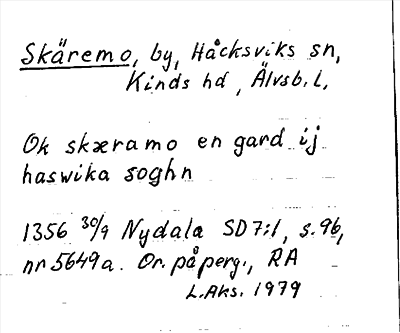 Skäremo, by, Håcksviks sn,
Kinds hd, Älvsb. l.
Ok skæramo en gard ij
haswika soghn
1356 30/9 Nydala SD 7:1, s. 96,
nr 5649a. Or. på perg., RA
L.Aks. 1979